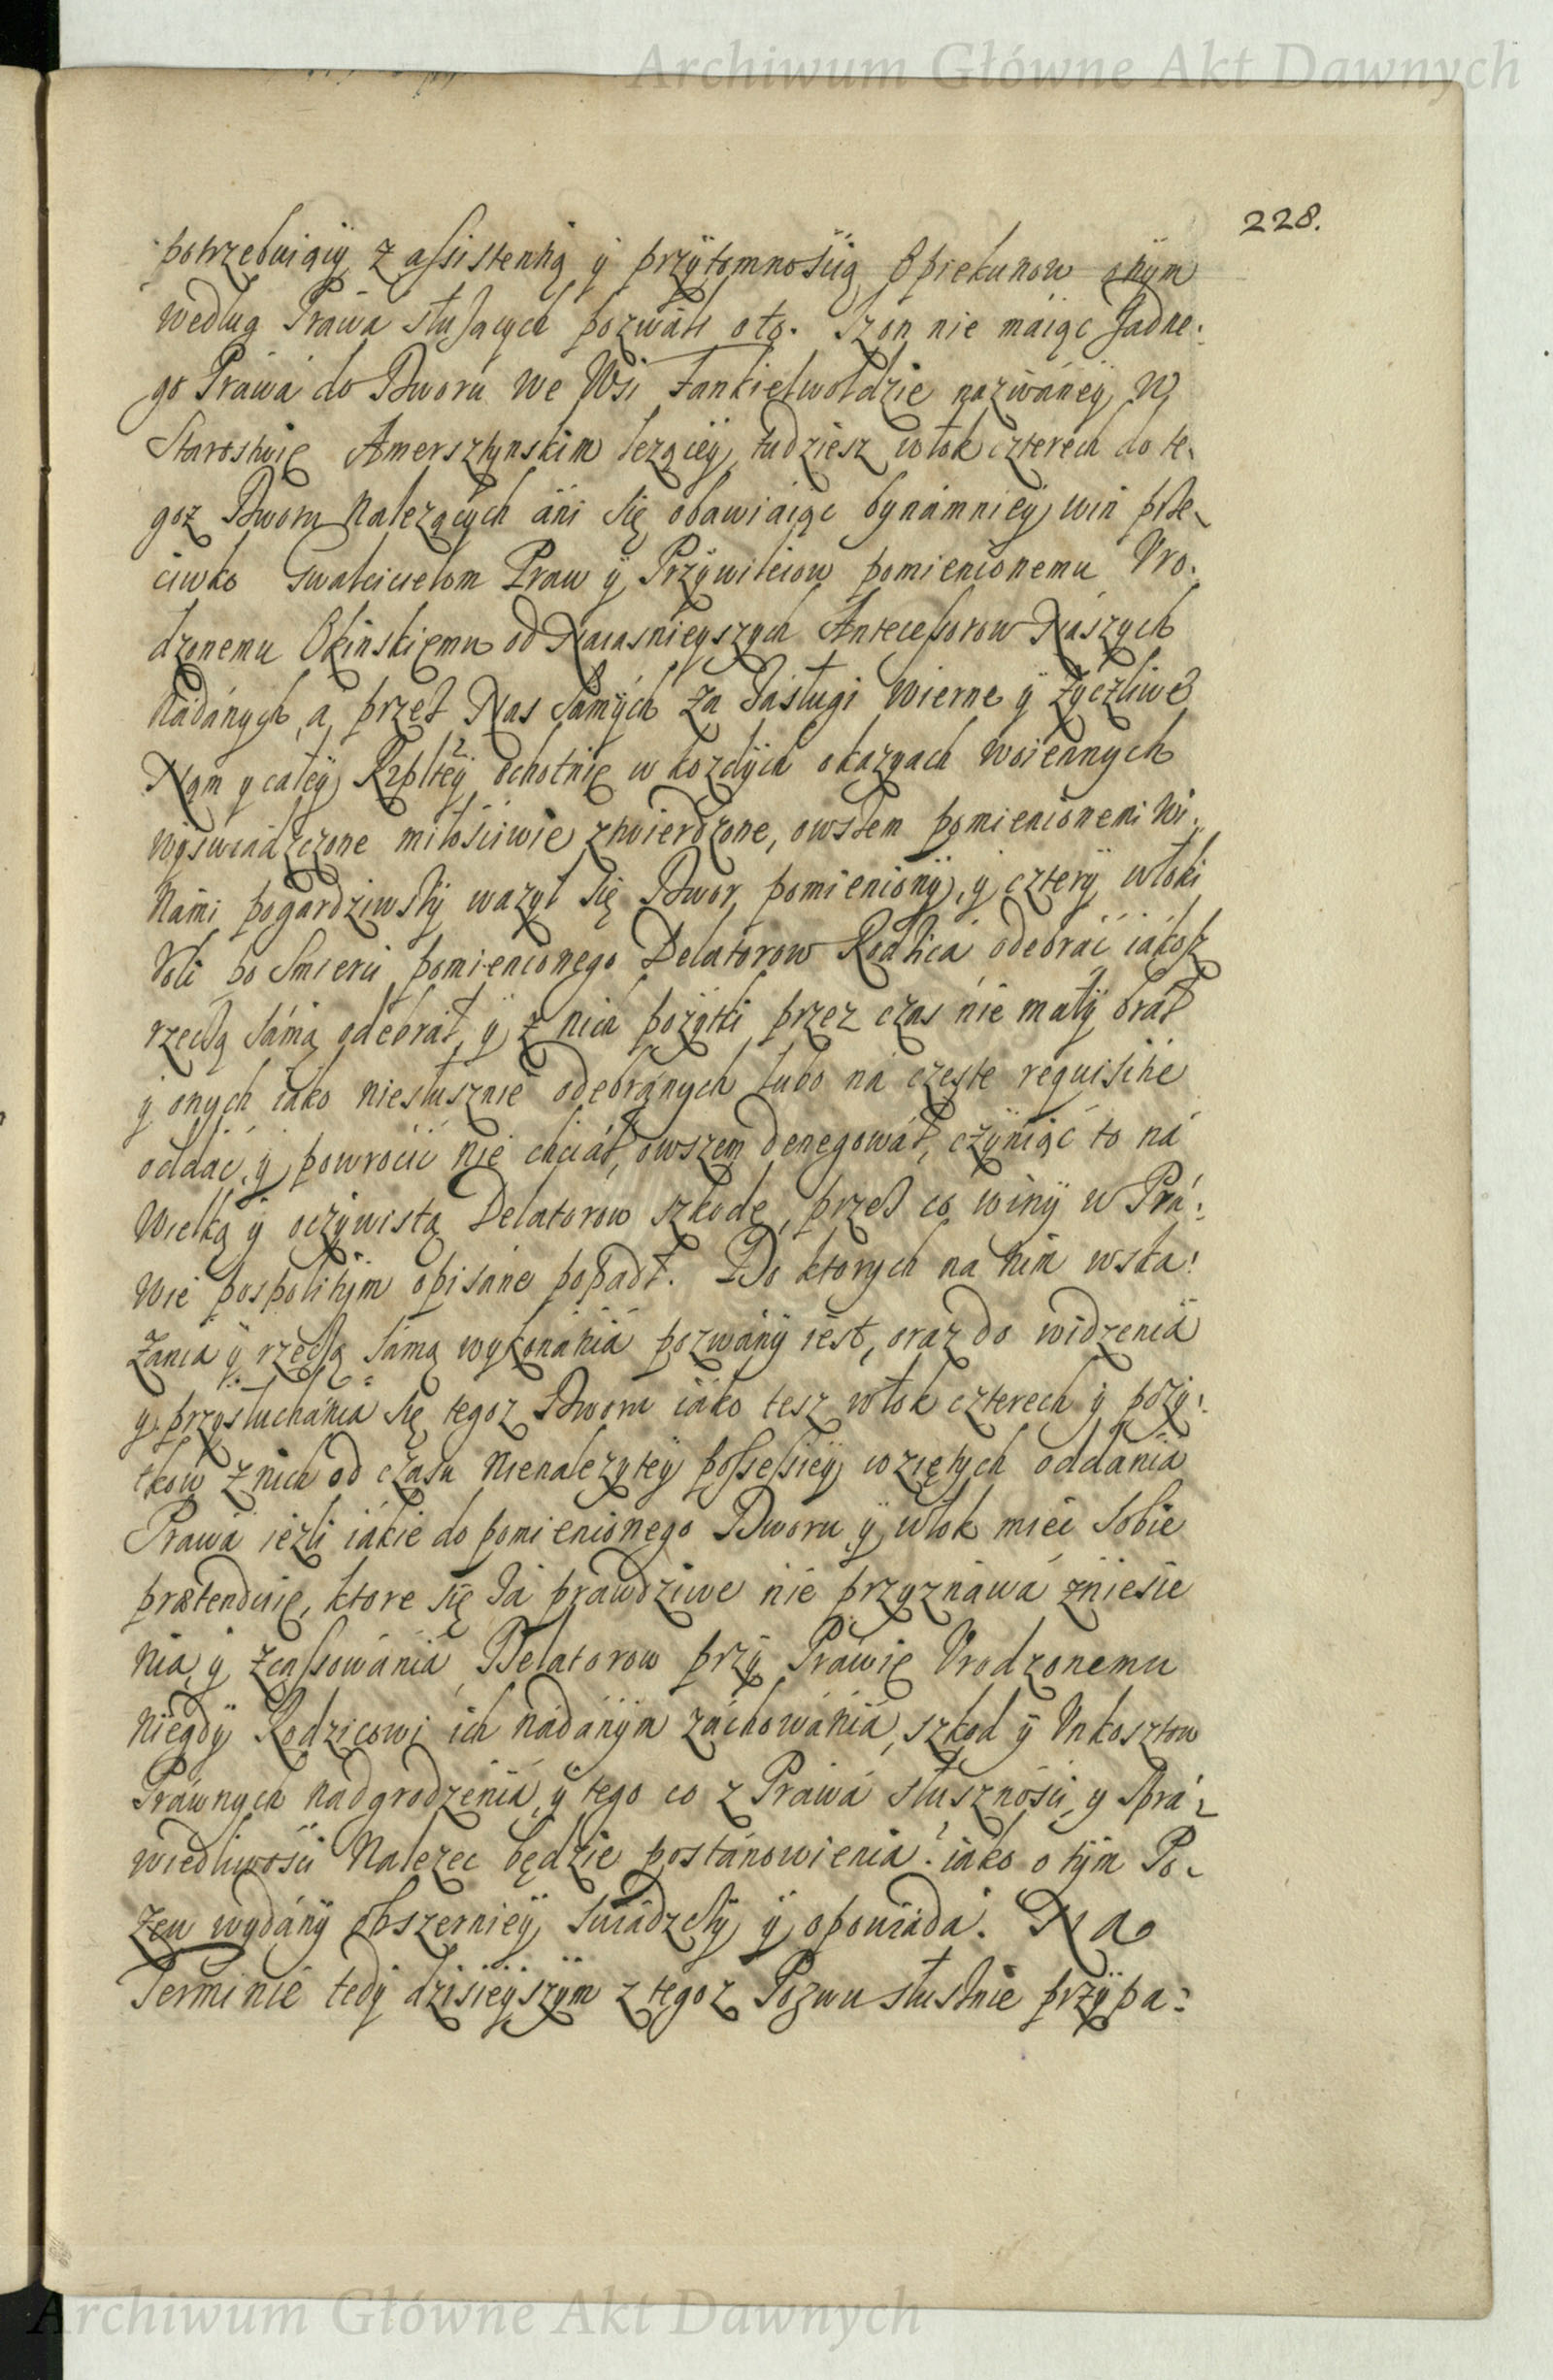 Archiwum Główne Akt Dawnych
228.
potrzebuiący z assistentią ÿ przÿtomnością Opiekunow onÿm
według Prawa słuząÿch pozwali oto. Iz on nie maiąc zadne:
go Prawa do Dworu we Wsi Łankielwoldzie nazwáneÿ w
Starostwie Amersztynskim lezącÿ, tudziesz włok czterech do te,
goz Dworu Nalezących ani się obawiaiąc bynamniey win prze,
ciwko Gwałcicielom Praw ÿ Przÿwileiow pomienionemu Vro,
dzonemu Okinskiemu od Naiasnieyszych Antecessorow Nászych
Nádánych, a przez Nas samÿch za zasługi wierne ÿ zÿczliwe
Nąm y całeÿ Rzpltey ochotnie w kozdÿch okazyach woiennych
wyswiadzczone miłościwie ztwierdzone, owszem pomienionemi wi,
Nami pogardziwszÿ wazył się Dwor pomienionÿ, y czterÿ włoki
Roli po smierci pomienionego Delatorow Rodzica odebrać iakosz
rzeczą sámą odebrał, ÿ z nich pozÿtki przez czas nie małÿ brał
ÿ onych iako niesłusznie odebranych lubo ná częste requisitie
oddać, y powrocić nie chciał, owszem denegował, czÿniąc to ná
Wielką ÿ oczÿwistą Delatorow szkodę, przez co winÿ w Prá:
wie pospolitÿm opisáne popadł. Do ktorych na nim wska:
zania ÿ rzeczą sámą wykonánia pozwánÿ iest, oraz do widzenia
y przysłuchánia się tegoz Dworu iáko tesz włok czterech y pozÿ:
tkow z nich od czasu Nienalezyteÿ possessieÿ wziętych oddánia
Prawá iezli iákie do pomienionego Dworu y włok mieć sobie
prætenduie, ktore się zá prawdziwe nie przyznáwa zniesie
nia, y zcassowánia, Delatorow przÿ Práwie Vrodzonemu
Niegdÿ Rodzicowi ich nádánÿm záchowánia, szkod ÿ Vnkosztow
Práwnych nadgrodzenia, ÿ tego co z Prawá słusznosci, y Sprá:
wiedliwosci Nalezec będzie postánowienia: iako o tÿm Po,
zew wydánÿ obszernieÿ swiádczÿ ÿ opowiáda. Na
Terminie tedÿ dzisieÿszÿm z tegoz Pozwu słusznie przÿpa:
Archiwum Główne Akt Dawnych